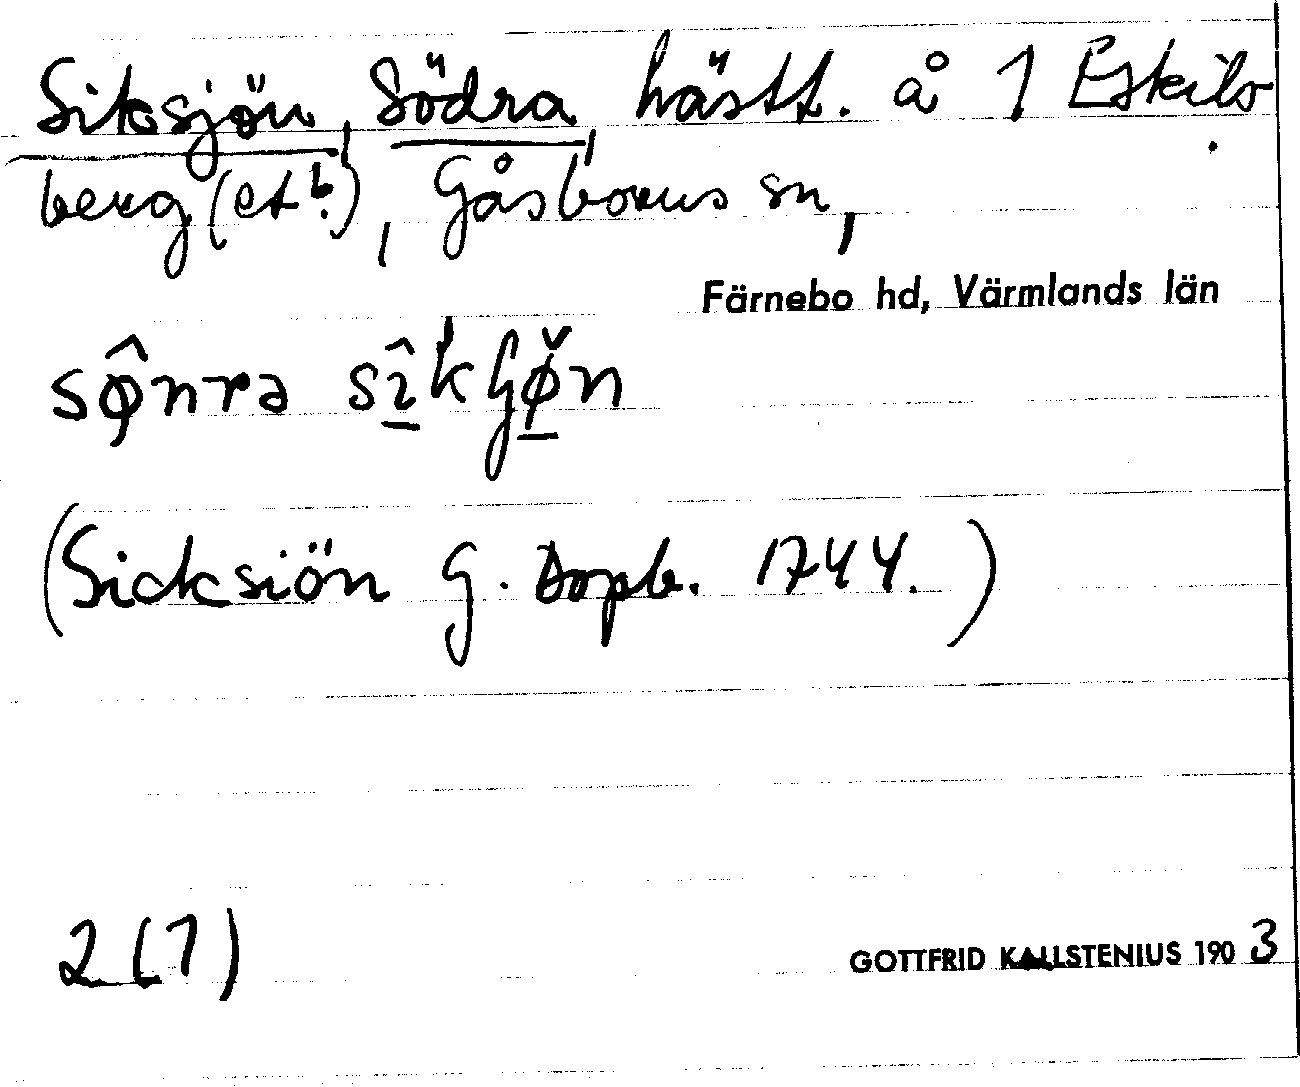 Siksjön, Södra, hästt. å 1 Eskils
berg (etb.), Gåsborns sn,
Färnebo hd, Värmlands län
(Sicksiön G. Dopb. 1744.)
2 (1)
GOTTFRID KALLSTENIUS 1903